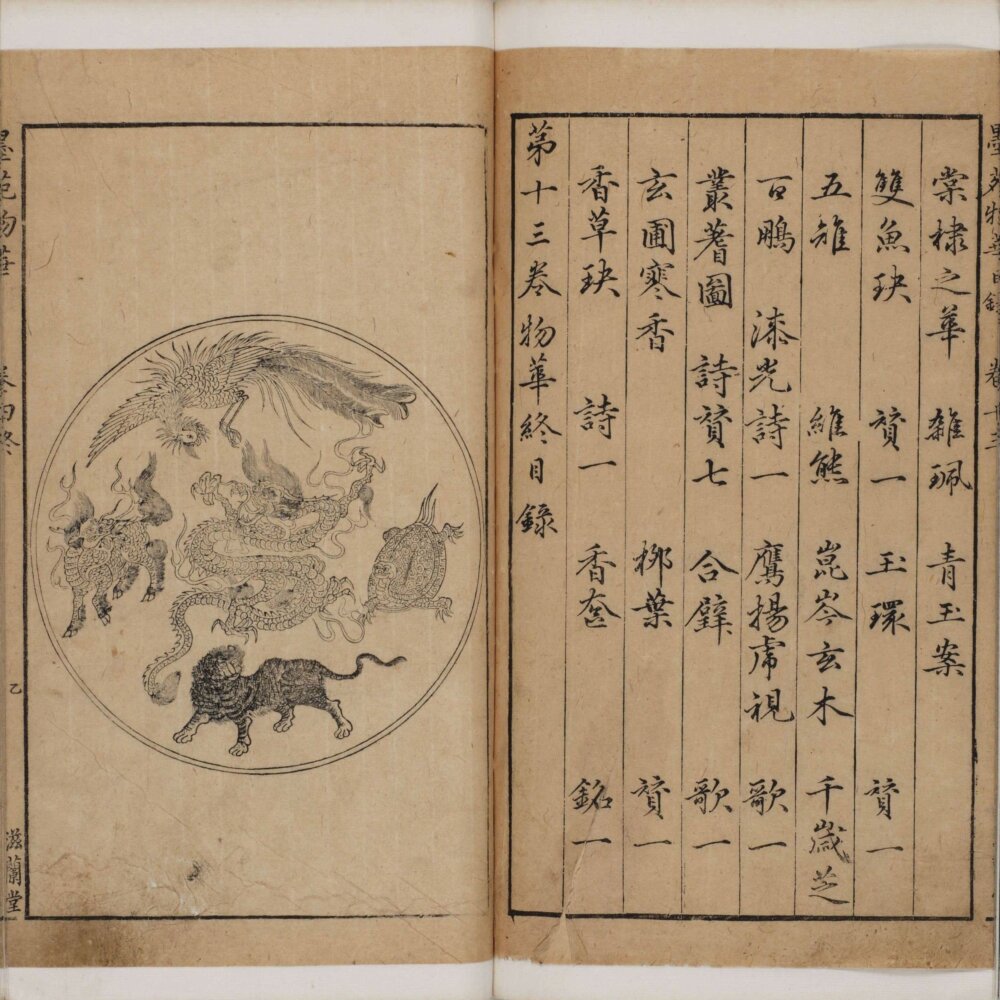 墨苑物華目錄 卷十三
棠棣之華 雜珮 青玉案
雙魚玦 賛一 玉環 賛一
五雉 維熊 崑岑玄木 千歲芝
百鵬 漆光詩一 鷹揚虎視 歌一
叢蓍圖 詩賛七 合璧 歌一
玄圃寒香 柳葉 賛一
香草玦 詩一 香奩 銘一
第十三卷物華終目錄
墨苑物華 卷 終 乙 滋蘭堂